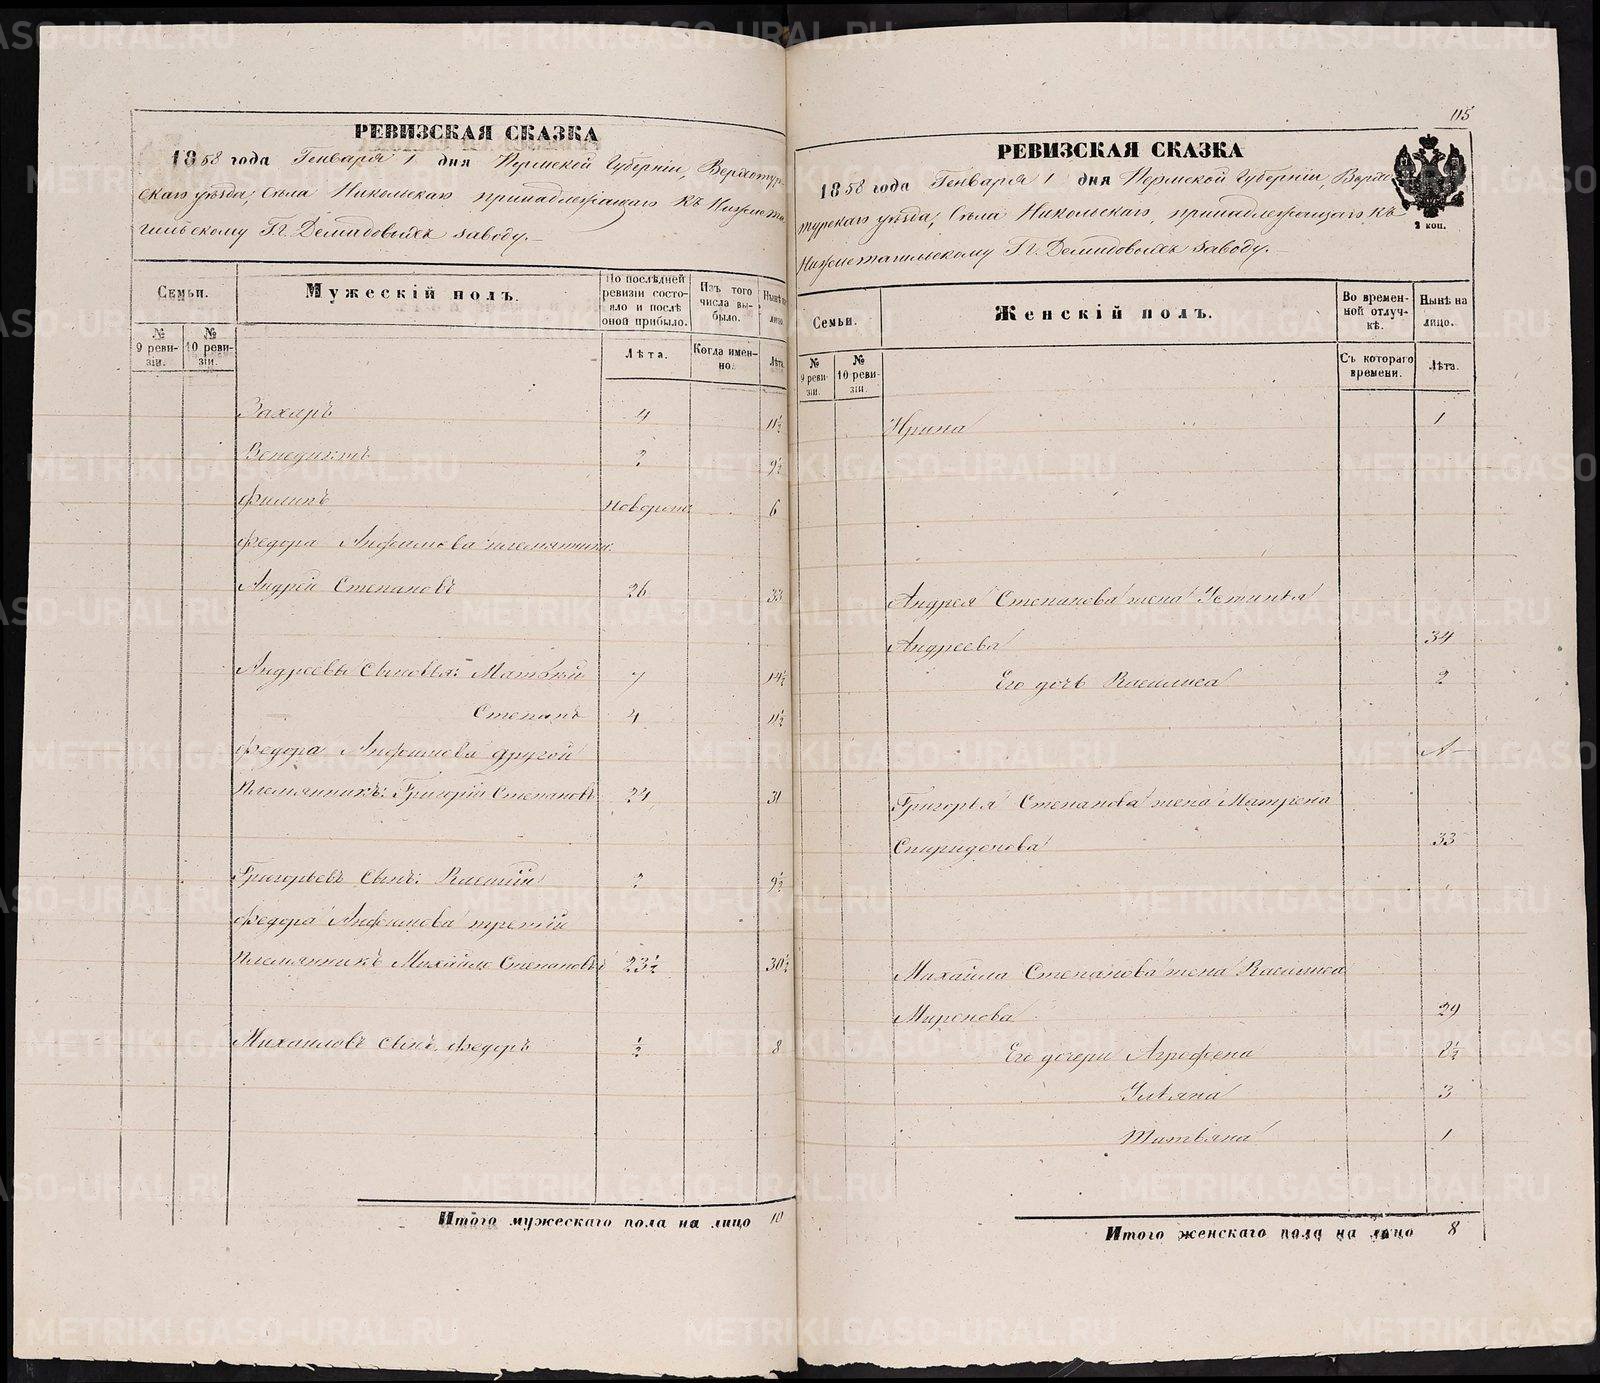 РЕВИЗСКАЯ СКАЗКА
1858 года Генваря 1 дня Пермской Губерніи, Верхотур-
скаго уѣзда, Села Никольскаго принадлежащаго къ Нижнета-
гильскому Гг. Демидовыхъ заводу.
Семьи.
Мужескій полъ.
По послѣдней ревизіи состо-яло и послѣ оной прибыло.
Изъ того числа вы-было.
Нынѣ на лицо.
№ 9 реви-зіи.
№ 10 реви-зіи.
Лѣта.
Когда имен-но.
Лѣта.
Захаръ 4 11½
Венедиктъ 2 9½
Филипъ новорожд 6
Федора Анфимова племянникъ
Андрей Степановъ 26 33
Андреевы сыновья: Матвѣй 7 14½
Степанъ 4 11½
Федора Анфимова другой
племянникъ: Григорій Степановъ 24 31
Григорьевъ сынъ: 2 9½
Федора Анфимова третій
племянникъ Михайло Степановъ 23½ 30½
Михайловъ сынъ Федоръ ½ 8
Итого мужескаго пола на лицо 10
115
РЕВИЗСКАЯ СКАЗКА
1858 года Генваря 1 дня Пермской Губерніи, Верхо-
турскаго уѣзда, Села Никольскаго, принадлежащаго къ
Нижнетагильскому Гг. Демидовыхъ заводу.
2 коп.
Семьи.
Женскій полъ.
Во времен-ной отлуч-кѣ.
Нынѣ на лицо.
№ 9 реви-зіи.
№ 10 реви-зіи.
Съ котораго времени.
Лѣта.
Ирина 1
Андрея Степанова жена Устинья
Андреева 34
Его дочь Василиса 2
Григорья Степанова жена Матрена
Спиридонова 33
Михайла Степанова жена Василиса
Миронова 29
Его дочери Агрофена 8½
Ульяна 3
Татьяна 1
Итого женскаго пола на лицо 8
METRIKI.GASO-URAL.RU